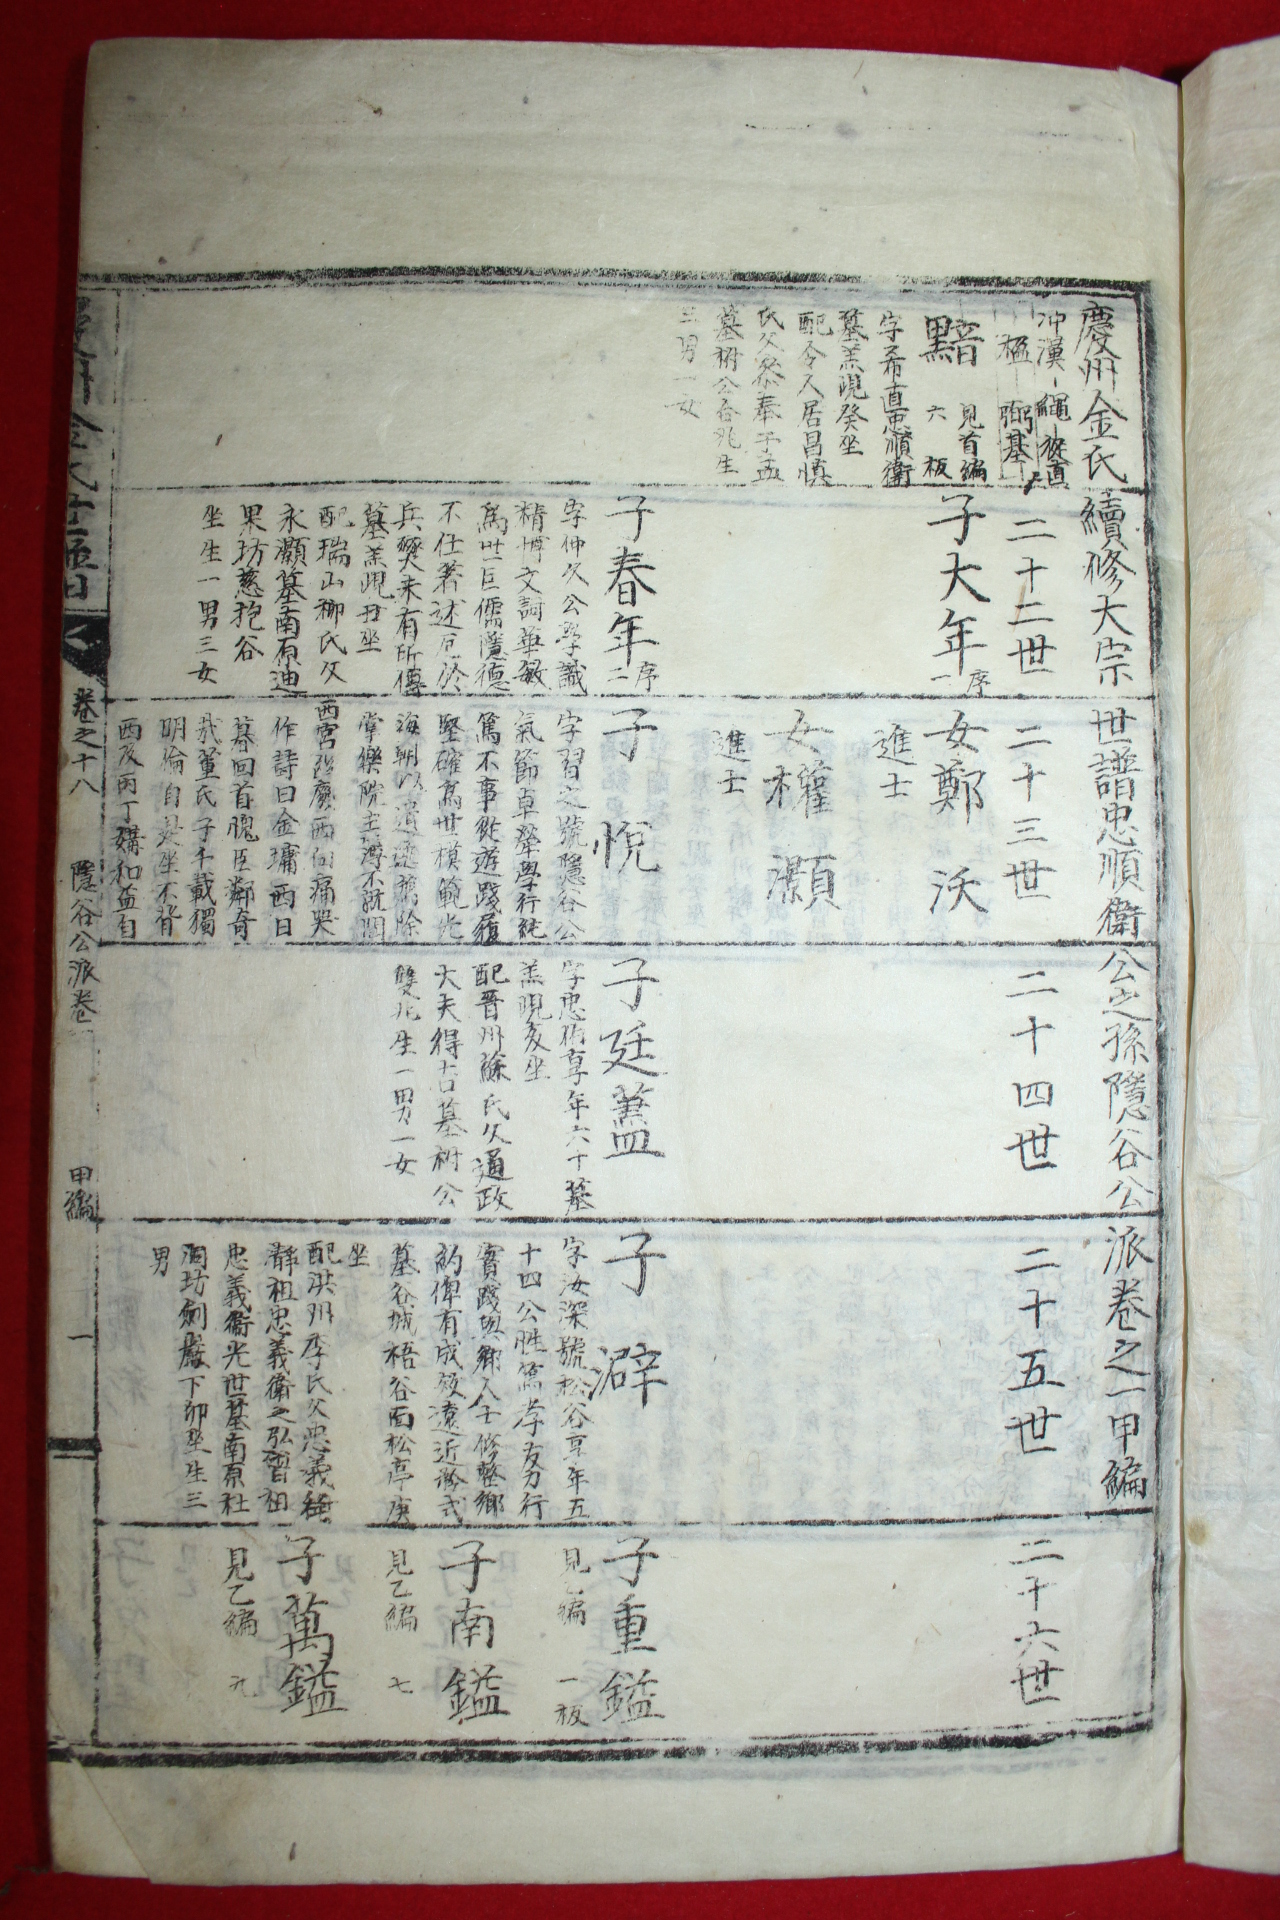 慶州金氏續修大宗世譜忠順衛公之孫隱谷公派卷之一甲編
冲漢
繩
從直
楹
弼基
黯
見首編
六板
字希直忠順衛
墓羔峴癸坐
配令人居昌愼
氏父參奉子孟
墓祔公合兆生
三男一女
二十二世
子大年
序一
子春年
序二
字仲久公學識
精博文詞華敏
爲世巨儒隱德
不仕著述厄於
兵燹未有所傳
墓羔峴丑坐
配瑞山柳氏父
永灝墓南原迪
果坊蔥抱谷
坐生一男三女
二十三世
女鄭沃
進士
女權灝
進士
子悅
字習之號隱谷公
氣節卓犖學行純
篤不事從遊踐履
堅確爲世模範光
海朝以遺逸薦除
掌樂院主簿不就聞
西宮
廢西向痛哭
作詩曰金墉西日
暮回首愧臣鄰奇
哉董氏子千載獨
明倫自是坐不背
西及丙丁媾和益自
二十四世
子廷藎
字忠伯享年六十墓
羔峴亥坐
配晋州蘇氏父通政
大夫得吉墓祔公
雙兆生一男一女
二十五世
子澼
字汝深號松谷享年五
十四公性篤孝友力行
實踐與鄉人士修整鄉
約俾有成效遠近矜式
墓谷城梧谷面松亭庚
坐
配洪州李氏父忠義
靜祖忠義衛之弘曾祖
忠義衛光世墓南原社
洞坊劍巖下卯坐生三
男
二十六世
子重鎰
見乙編
一板
子南鎰
見乙編
七
子萬鎰
見乙編
九
卷之十八
隱谷公派卷一
甲編
一